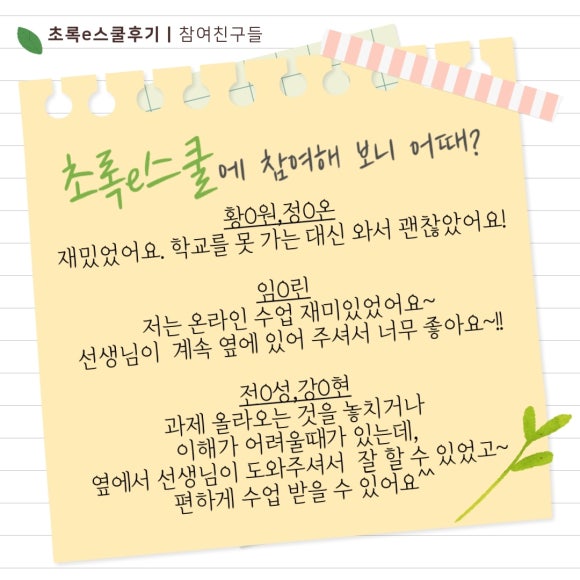 초록e스쿨후기 | 참여친구들
초록e스쿨에 참여해 보니 어때?
황O원,정O온
재밌었어요. 학교를 못 가는 대신 와서 괜찮았어요!
임O린
저는 온라인 수업 재미있었어요~
선생님이 계속 옆에 있어 주셔서 너무 좋아요~!!
전O성,강O현
과제 올라오는 것을 놓치거나
이해가 어려울때가 있는데,
옆에서 선생님이 도와주셔서 잘 할 수 있었고~
편하게 수업 받을 수 있어요^^